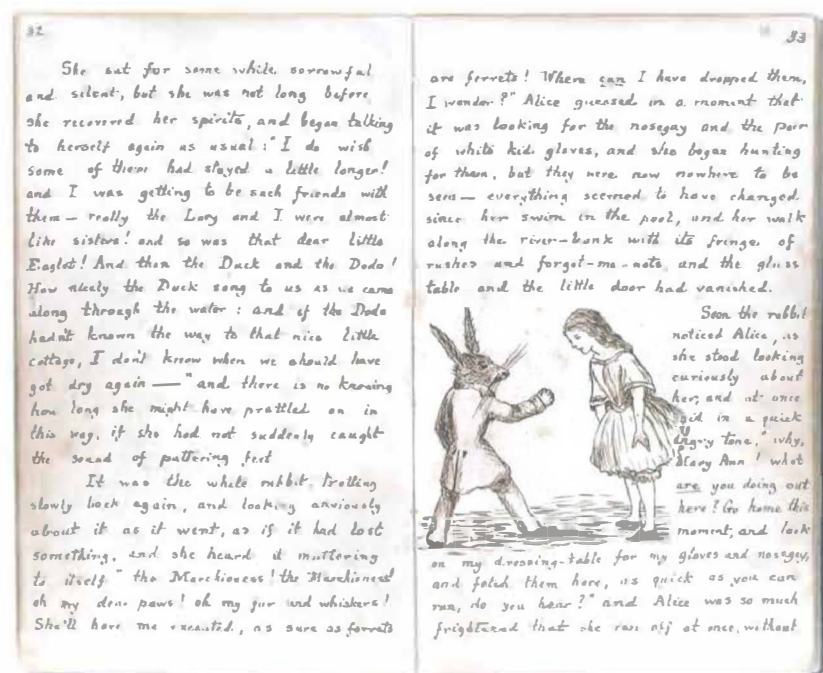 32
She sat for some while sorrowful
and silent, but she was not long before
she recovered her spirits, and began talking
to herself again as usual: "I do wish
some of them had stayed a little longer!
and I was getting to be such friends with
them — really the Lory and I were almost
like sisters! and so was that dear little
Eaglet! And then the Duck and the Dodo!
How nicely the Duck sang to us as we came
along through the water: and if the Dodo
hadn't known the way to that nice little
cottage, I don't know when we should have
got dry again —" and there is no knowing
how long she might have prattled on in
this way, if she had not suddenly caught
the sound of pattering feet
It was the white rabbit, trotting
slowly back again, and looking anxiously
about it as it went, as if it had lost
something, and she heard it muttering
to itself "the Marchioness! the Marchioness!
oh my dear paws! oh my fur and whiskers!
She'll have me executed, as sure as ferrets
33
are ferrets! Where can I have dropped them,
I wonder?" Alice guessed in a moment that
it was looking for the nosegay and the pair
of white kid gloves, and she began hunting
for them, but they were now nowhere to be
seen — everything seemed to have changed
since her swim in the pool, and her walk
along the river-bank with its fringe of
rushes and forget-me-nots, and the glass
table and the little door had vanished.
Soon the rabbit
noticed Alice, as
she stood looking
curiously about
her, and at once
said in a quick
angry tone, "why,
Mary Ann! what
are you doing out
here? Go home this
moment, and look
on my dressing-table for my gloves and nosegay,
and fetch them here, as quick as you can
run, do you hear?" and Alice was so much
frightened that she ran off at once, without